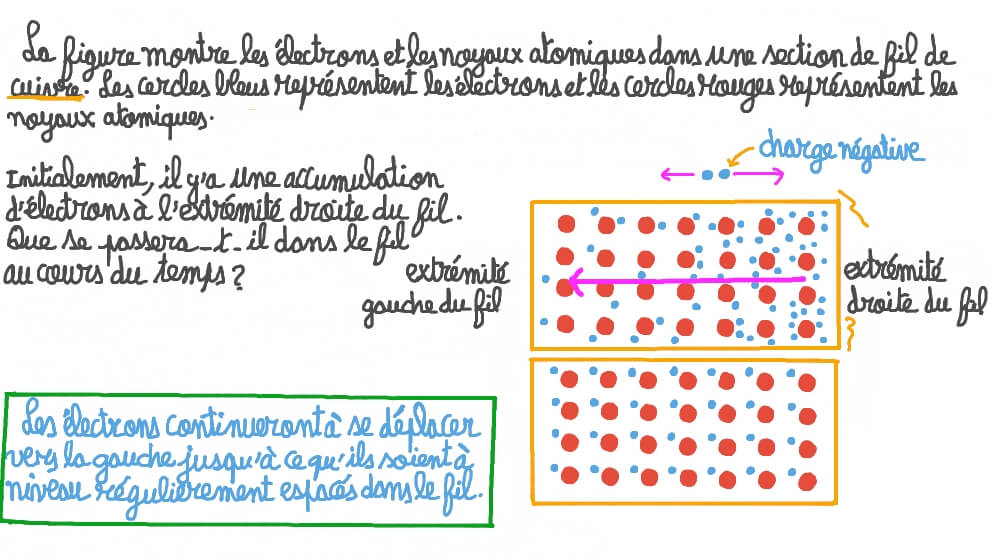 La figure montre les électrons et les noyaux atomiques dans une section de fil de
cuivre. Les cercles bleus représentent les électrons et les cercles rouges représentent les
noyaux atomiques.
charge négative
Initialement, il y'a une accumulation
d'électrons à l'extrémité droite du fil.
Que se passera-t-il dans le fil
au cours du temps?
extrémité
gauche du fil
extrémité
droite du fil
Les électrons continueront à se déplacer
vers la gauche jusqu'à ce qu'ils soient à
niveau régulièrement espacés dans le fil.